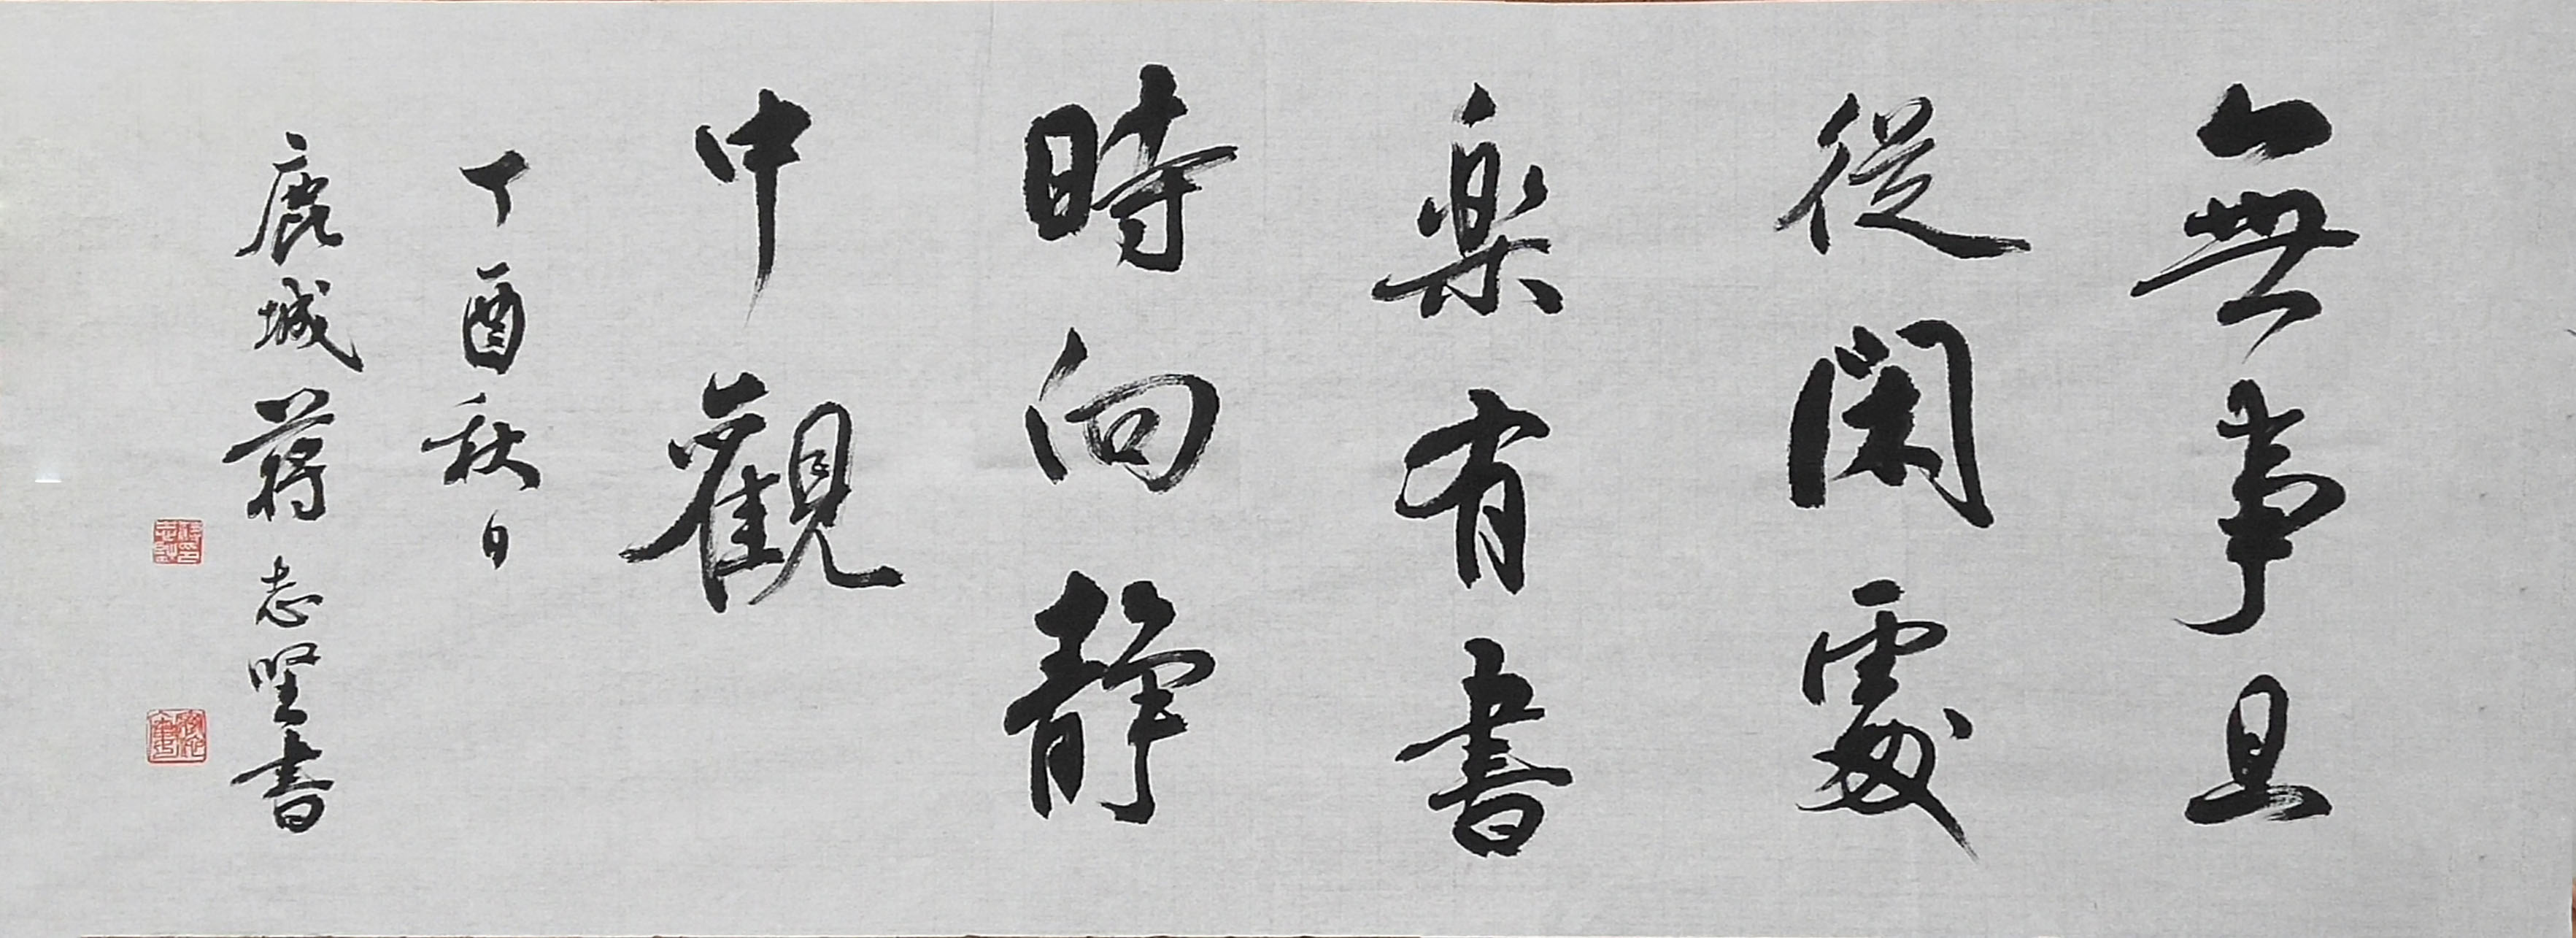 無事且
從閑處
楽有書
時向静
中觀
丁酉秋日
鹿城蔣志堅書